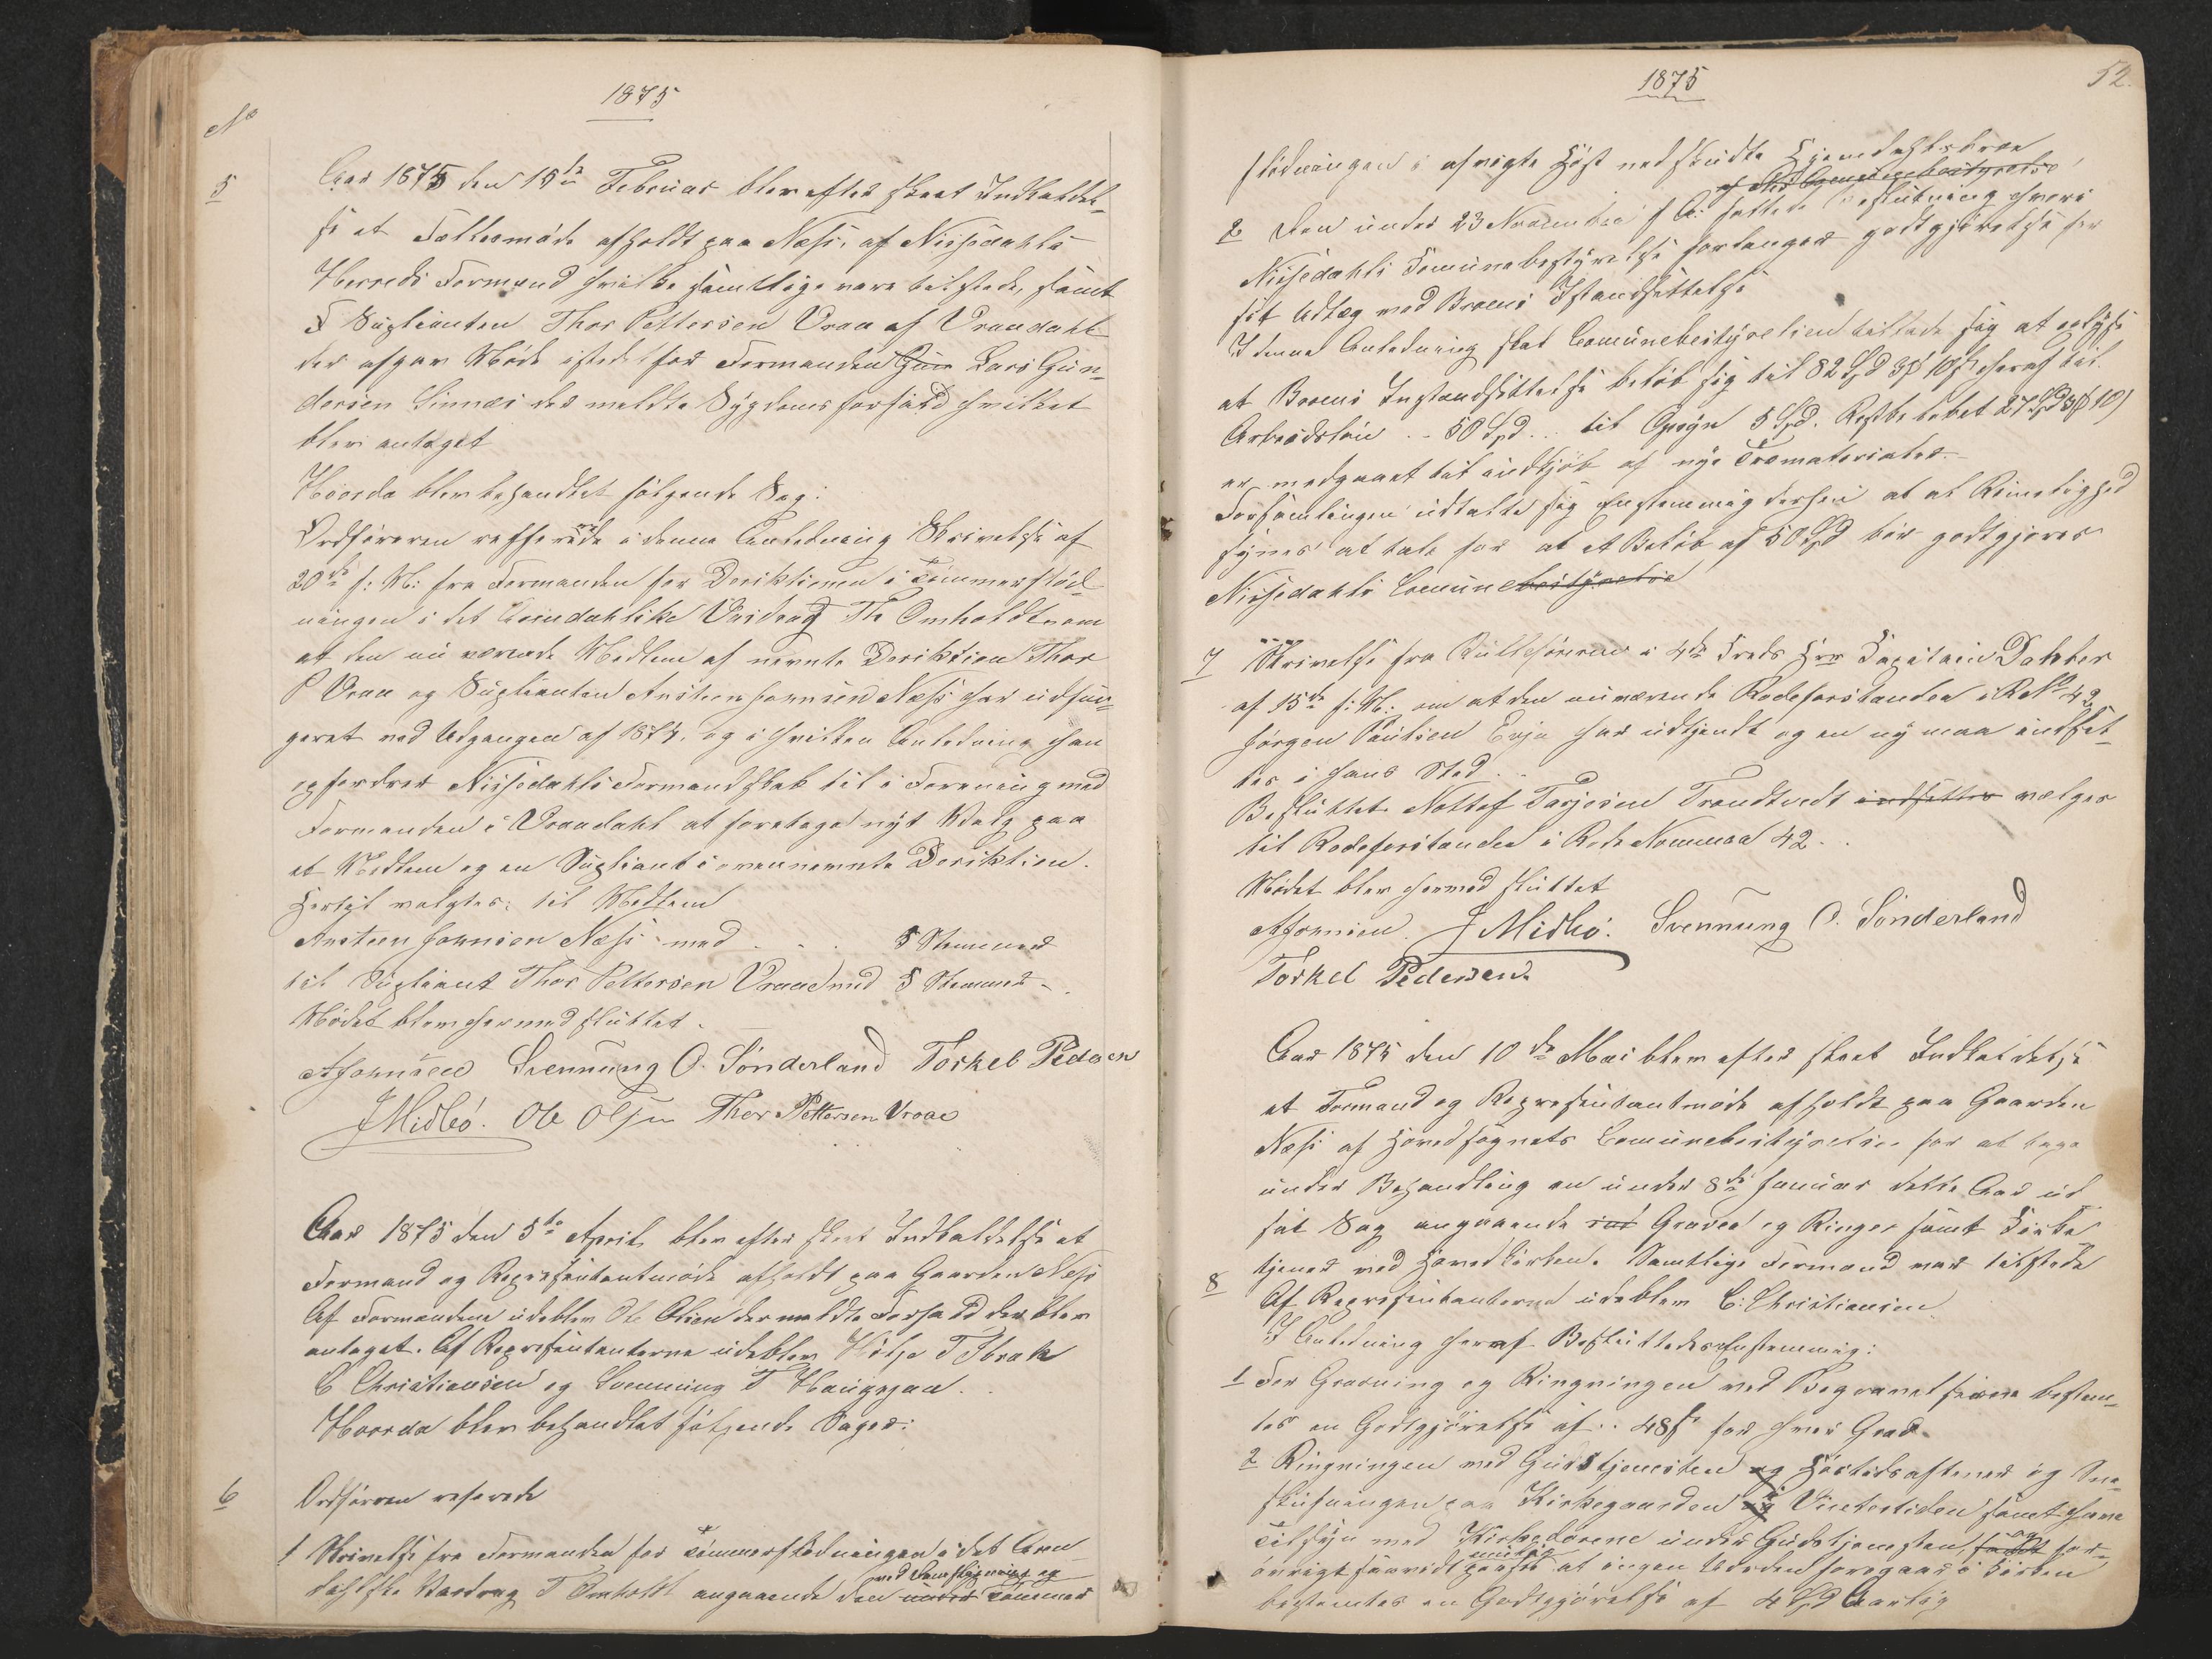 1875
No
5
Aar 1875 den 15de Februar blev efter skeet Indkaldel-
se et Fællesmøde afholdt paa Næss, af Nissedahls
Herreds Formænd hvilke samtlige vare tilstede, samt
Suplianten Thor Pettersen Vraa af Vraadahl
der afgav Møde istedetfor Formanden Lars Gun-
dersen Sinnes der meldte Sygdoms forfald hvilket
blev antaget
Hvorda blev behandlet følgende Sag:
Ordføreren refererede i denne Anledning Skrivelse af
20de f: M: fra Formanden for Direktionen i Tømmerflød-
ningen i det Arendahlske Vasdrag Th Omholdt om
at den nu værende Medlem af nevnte Direktion Thor
P Vraa og Suplianten Ansteen Johnsen Næss har udfun-
geret ved Udgangen af 1874, og i hvilken Anledning han
opfordrer Nissedahls Formandskab til i Forening med
Formanden i Vraadahl at foretage nyt Valg paa
et Medlem og en Supliant i ovennevnte Direktion.
Hertil valgtes: til Medlem
Ansteen Johnsen Næss med . . . 5 Stemmer
til Supliant Thor Pettersen Vraa med 5 Stemmer
Mødet blev hermed sluttet.
AJohnsen Svennung O. Sønderland Torkel Pedersen
J Midbö. Ole Olsen Thor Pettersen Vraae
Aar 1875 den 5te April blev efter skeet Indkaldelse et
Formand og Repræsentantmøde afholdt paa Gaarden Næss
Af Formændene udeblev Ole Olsen der meldte Forfald der blev
antaget. Af Repræsentanterne udeblev T
C Christiansen og Svenning T Haugsjaa.
Hvorda blev behandlet følgende Sager:
6
Ordføreren refererede
1 Skrivelse fra Formanden for Tømmerflødningen i det Aren-
ved og
dahlske Vasdrag T Omholdt angaaende den under Tømmer
1875
52.
flødningen i afvigte Høst nedskudte Hjemdahlsbroe
af Comunebestyrelse
2 Den under 23 November f A: fattede Beslutning hvori
Nissedahls Comunebestyrelse forlanger godtgjørelse for
sit Udlæg med Broens Istandsættelse
I denne Anledning skal Comunebestyrelsen tillade sig at oplyse
at Broens Instandsættelse beløb sig til 82 Spd 3 10 heraf til
Arbeidsløn . . 50 Spd . . til Opsyn 5 Spd. Restbeløbet 27 Spd 3 10
er medgaaet til indkjøb af nye Træmaterialer.
Forsamlingen udtalte sig Enstemmig derhen at al Rimelighed
synes at tale for at et Beløb af 50 Spd bør godtgjøres
Nissedahls Comunebestyrelse
7 Skrivelse fra Rulleføreren i 4de Hr Capitain Dahler
af 15de f: M: om at den nuværende Rodeforstander i R No 42
Jørgen Paulsen Eeje har udtjendt og en ny maa indset-
tes i hans Sted.
Besluttet. Nottof Tarjesen Trondtvedt indsættes vælges
til Rodeforstander i Rode Nommer 42.
Mødet blev hermed sluttet
AJohnsen. J Midbö. Svennung O. Sønderland
Torkel Pedersen
Aar 1875 den 10de Mai blev efter skeet Indkaldelse
et Formand og Repræsentantmøde afholdt paa Gaarden
Næss af Hovedsognets Comunebestyrelse for at tage
under Behandling en under 8de Januar dette Aar ud
sat Sag angaaende Graver og Ringer samt Kirke
tjener ved Hovedkirken. Samtlige Formænd var tilstede
8
Af Repræsentanterne udeblev C. Christiansen
I Anledning heraf Besluttedes Enstemmig:
1 For Gravning og Ringningen ved Begravelserne bestem-
tes en Godtgjørelse af . . 48 s for hver Grav.
2 Ringningen ved Gudstjenesten og Høitidsaftener og Sne-
skufningen paa Kirkegaarden i Vintertiden samt have
Tilsyn med Kirkedørene under Gudstjenesten og for-
øvrigt saavidt muligt passe at ingen Uorden foregaar i Kirken
bestemtes en Godtgjørelse af 4 Spd Aarlig